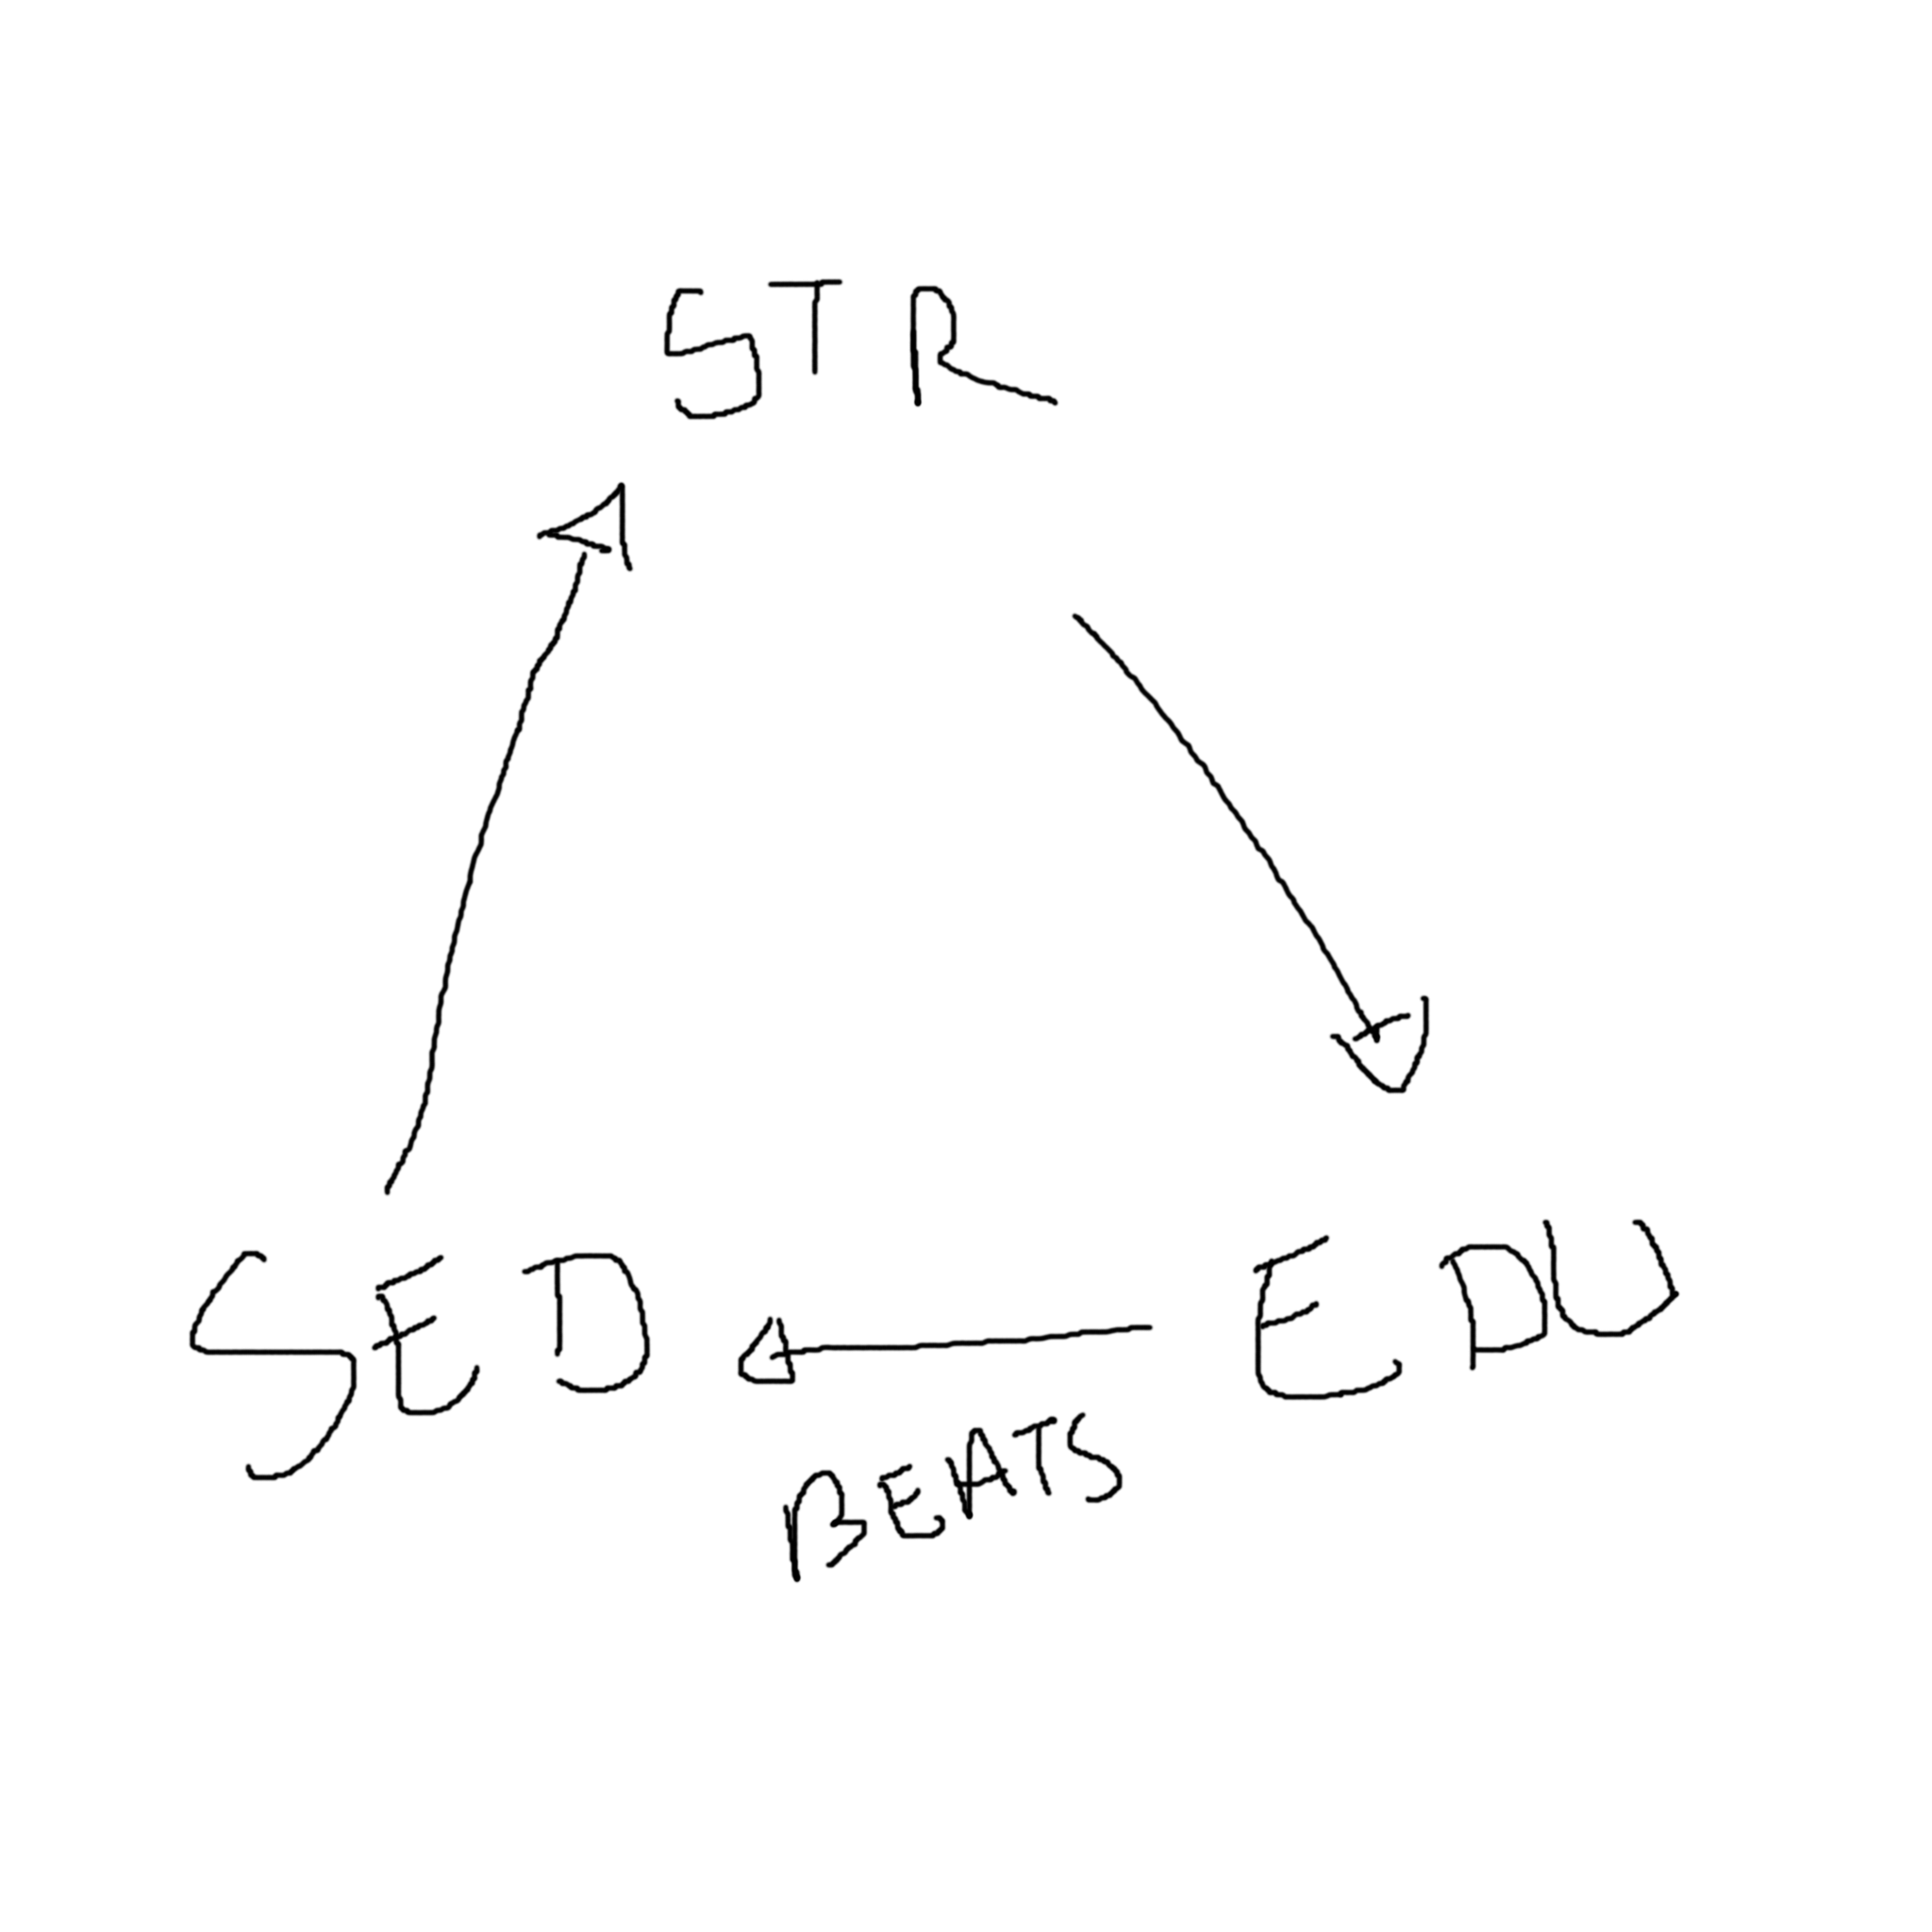 STR
SED
EDU
BEATS